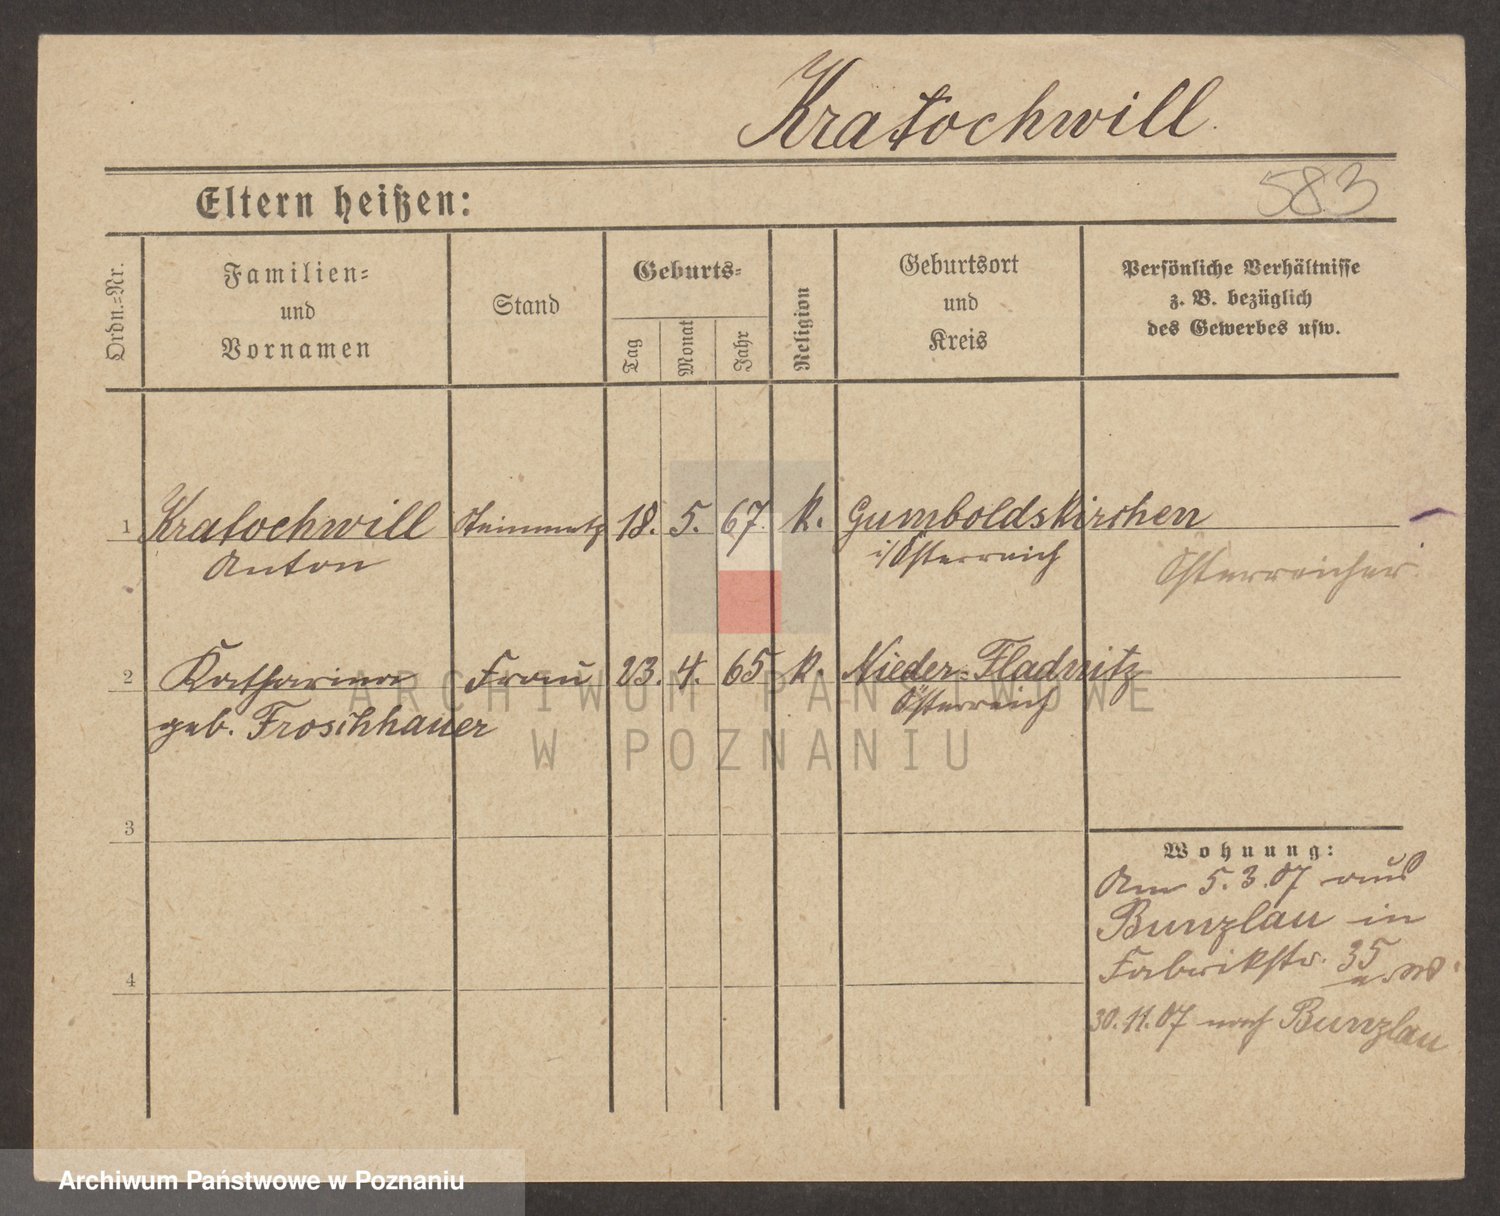 Kratochwill.
583
Eltern heißen:
Ordn.-Nr.
Familien-
und
Vornamen
Stand
Geburts-
Tag
Monat
Jahr
Religion
Geburtsort
und
Kreis
Persönliche Verhältnisse
z. B. bezüglich
des Gewerbes usw.
1 Kratochwill Steinmetz 18. 5. 67. k. Gumboldskirchen
Anton i/Österreich Österreicher.
2 Katharina Frau 23. 4. 65 k. Nieder-Fladnitz
geb. Froschhauer Österreich
3
4
Wohnung:
Am 5.3.07 aus
Bunzlau in
Fabrikstr. 35
30.11.07 nach Bunzlau
ARCHIWUM PAŃSTWOWE
W POZNANIU
Archiwum Państwowe w Poznaniu